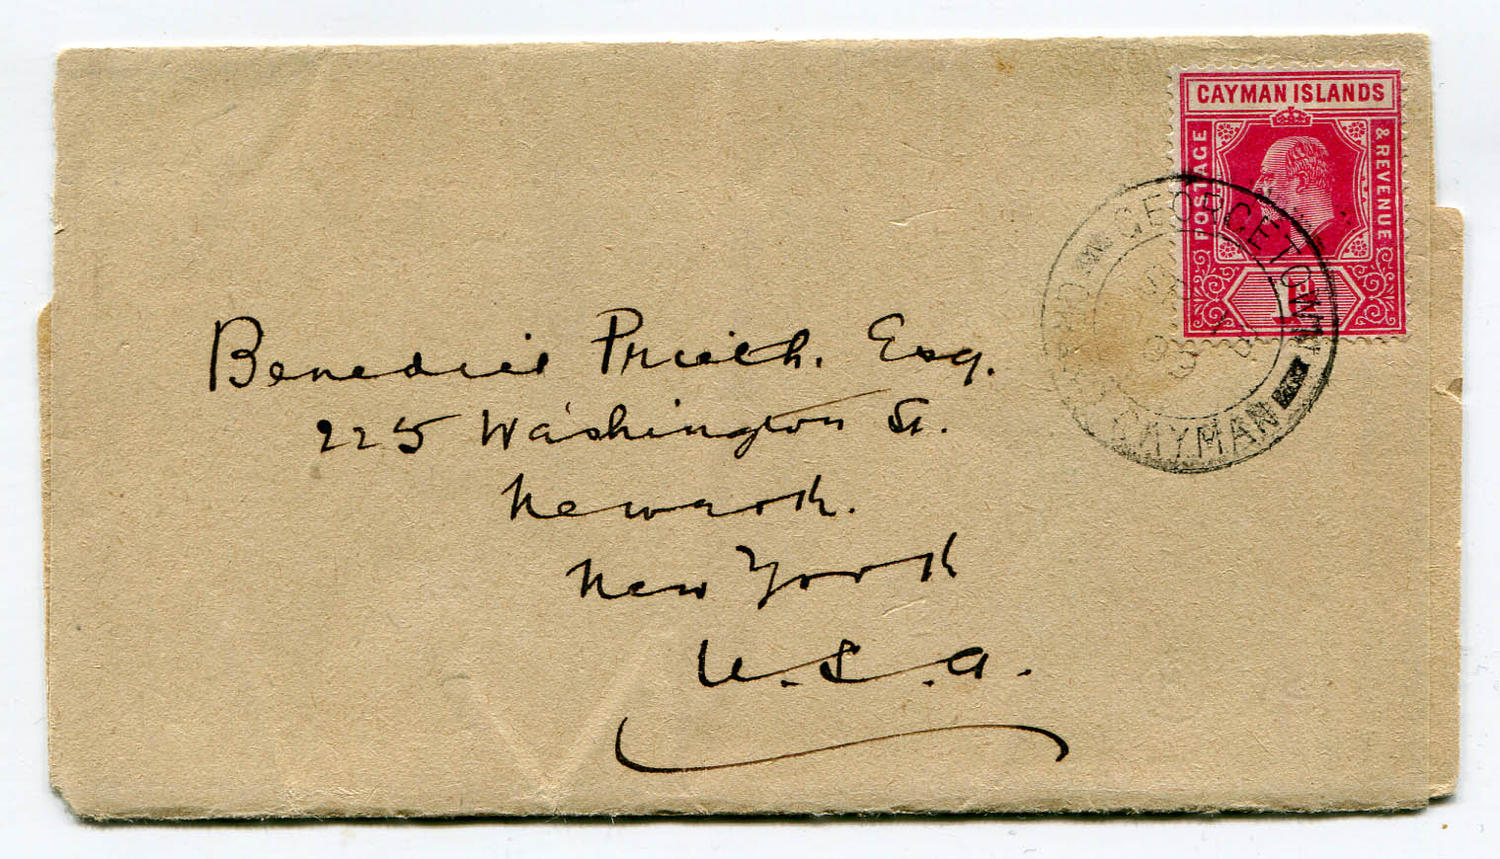 CAYMAN ISLANDS
POSTAGE
& REVENUE
1D
GEORGETOWN
GRAND CAYMAN
Benedict Prieth. Esq.
225 Washington St.
Newark.
New York
U.S.A.